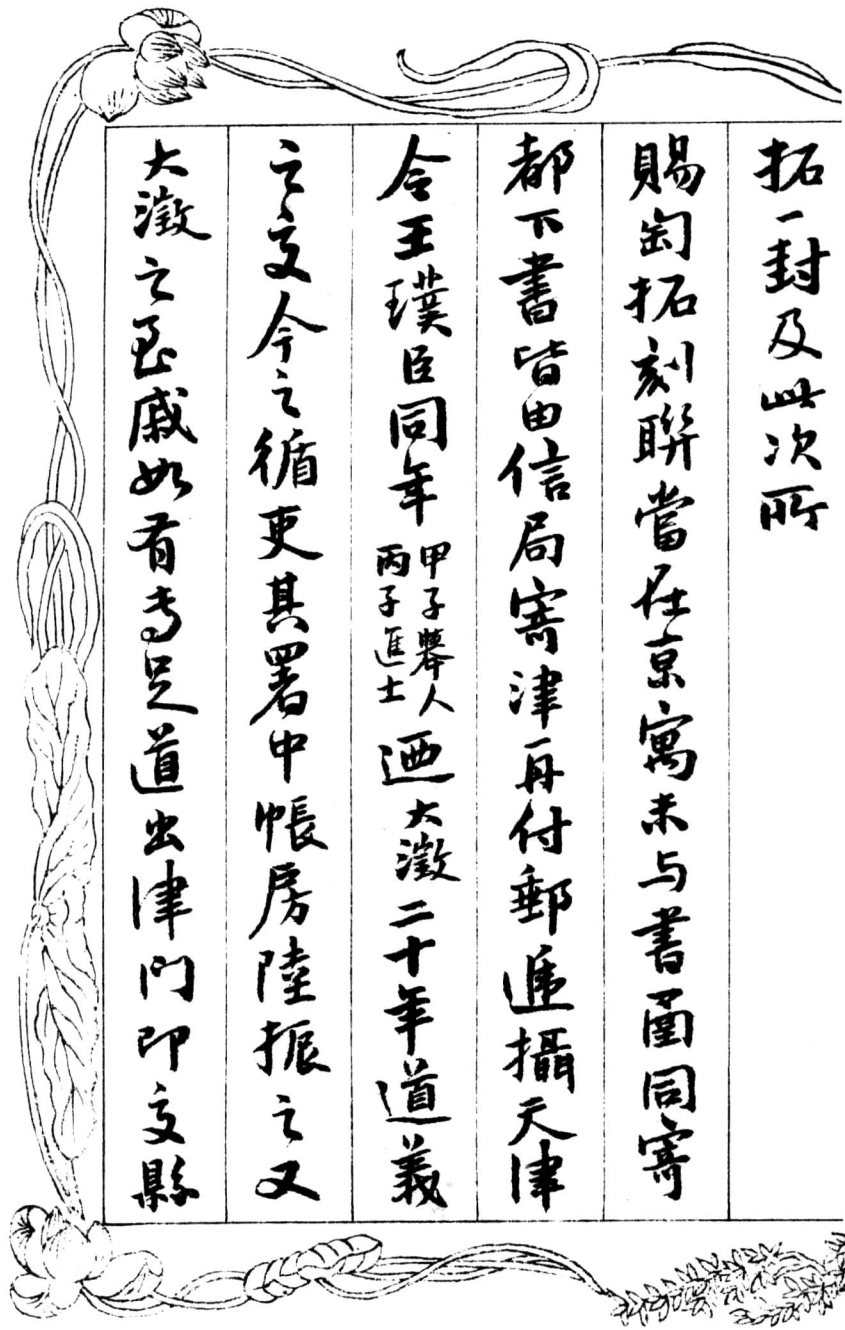 拓一封及此次所
賜匋拓刻聯當在京寓未与書圅同寄
都下書皆由信局寄津再付郵遞攝天津
令王璞臣同年甲子舉人丙子進士迺大澂二十年道義
之交今之循吏其署中帳房陸振之又
大澂之至戚如有專足道出津門即交縣